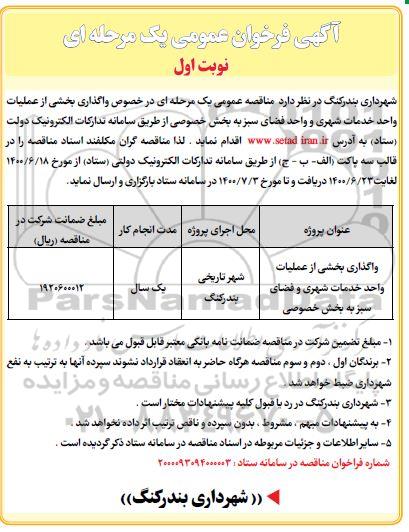 آگهی فرخوان عمومی یک مرحله ای
نوبت اول
شهرداری بندرکنگ در نظر دارد مناقصه عمومی یک مرحله ای در خصوص واگذاری بخشی از عملیات
واحد خدمات شهری و واحد فضای سبز به بخش خصوصی از طریق سامانه تدارکات الکترونیک دولت
(ستاد) به آدرس www.setad iran.ir اقدام نماید . لذا مناقصه گران مکلفند اسناد مناقصه را در
قالب سه پاکت (الف- ب - ج) از طریق سامانه تدارکات الکترونیک دولتی (ستاد) از مورخ ۱۴۰۰/۶/۱۸
لغایت ۱۴۰۰/۶/۲۳ دریافت و تا مورخ ۱۴۰۰/۷/۳ در سامانه ستاد بارگزاری و ارسال نماید.
عنوان پروژه
محل اجرای پروژه
مدت انجام کار
مبلغ ضمانت شرکت در
مناقصه (ریال)
واگذاری بخشی از عملیات
واحد خدمات شهری و فضای
سبز به بخش خصوصی
شهر تاریخی
بندرکنگ
یک سال
۱۹۲۰۶۰۰۰۱۲
۱- مبلغ تضمین شرکت در مناقصه ضمانت نامه بانکی معتبر قابل قبول می باشد
۲- برندگان اول ، دوم و سوم مناقصه هرگاه حاضر به انعقاد قرارداد نشوند سپرده آنها به ترتیب به نفع
شهرداری ضبط خواهد شد .
۳- شهرداری بندرکنگ در رد یا قبول کلیه پیشنهادات مختار است .
۴- به پیشنهادات مبهم ، مشروط ، بدون سپرده و ناقص ترتیب اثر داده نخواهد شد .
۵- سایر اطلاعات و جزئیات مربوطه در اسناد مناقصه در سامانه ستاد ذکر گردیده است .
شماره فراخوان مناقصه در سامانه ستاد : ۲۰۰۰۰۹۳۰۹۴۰۰۰۰۰۳
(( شهرداری بندرکنگ))
ParsNamadData
پایگاه اطلاع رسانی مناقصه و مزایده
۰۲۱-۸۸۳۴۹۶۷۰-۵